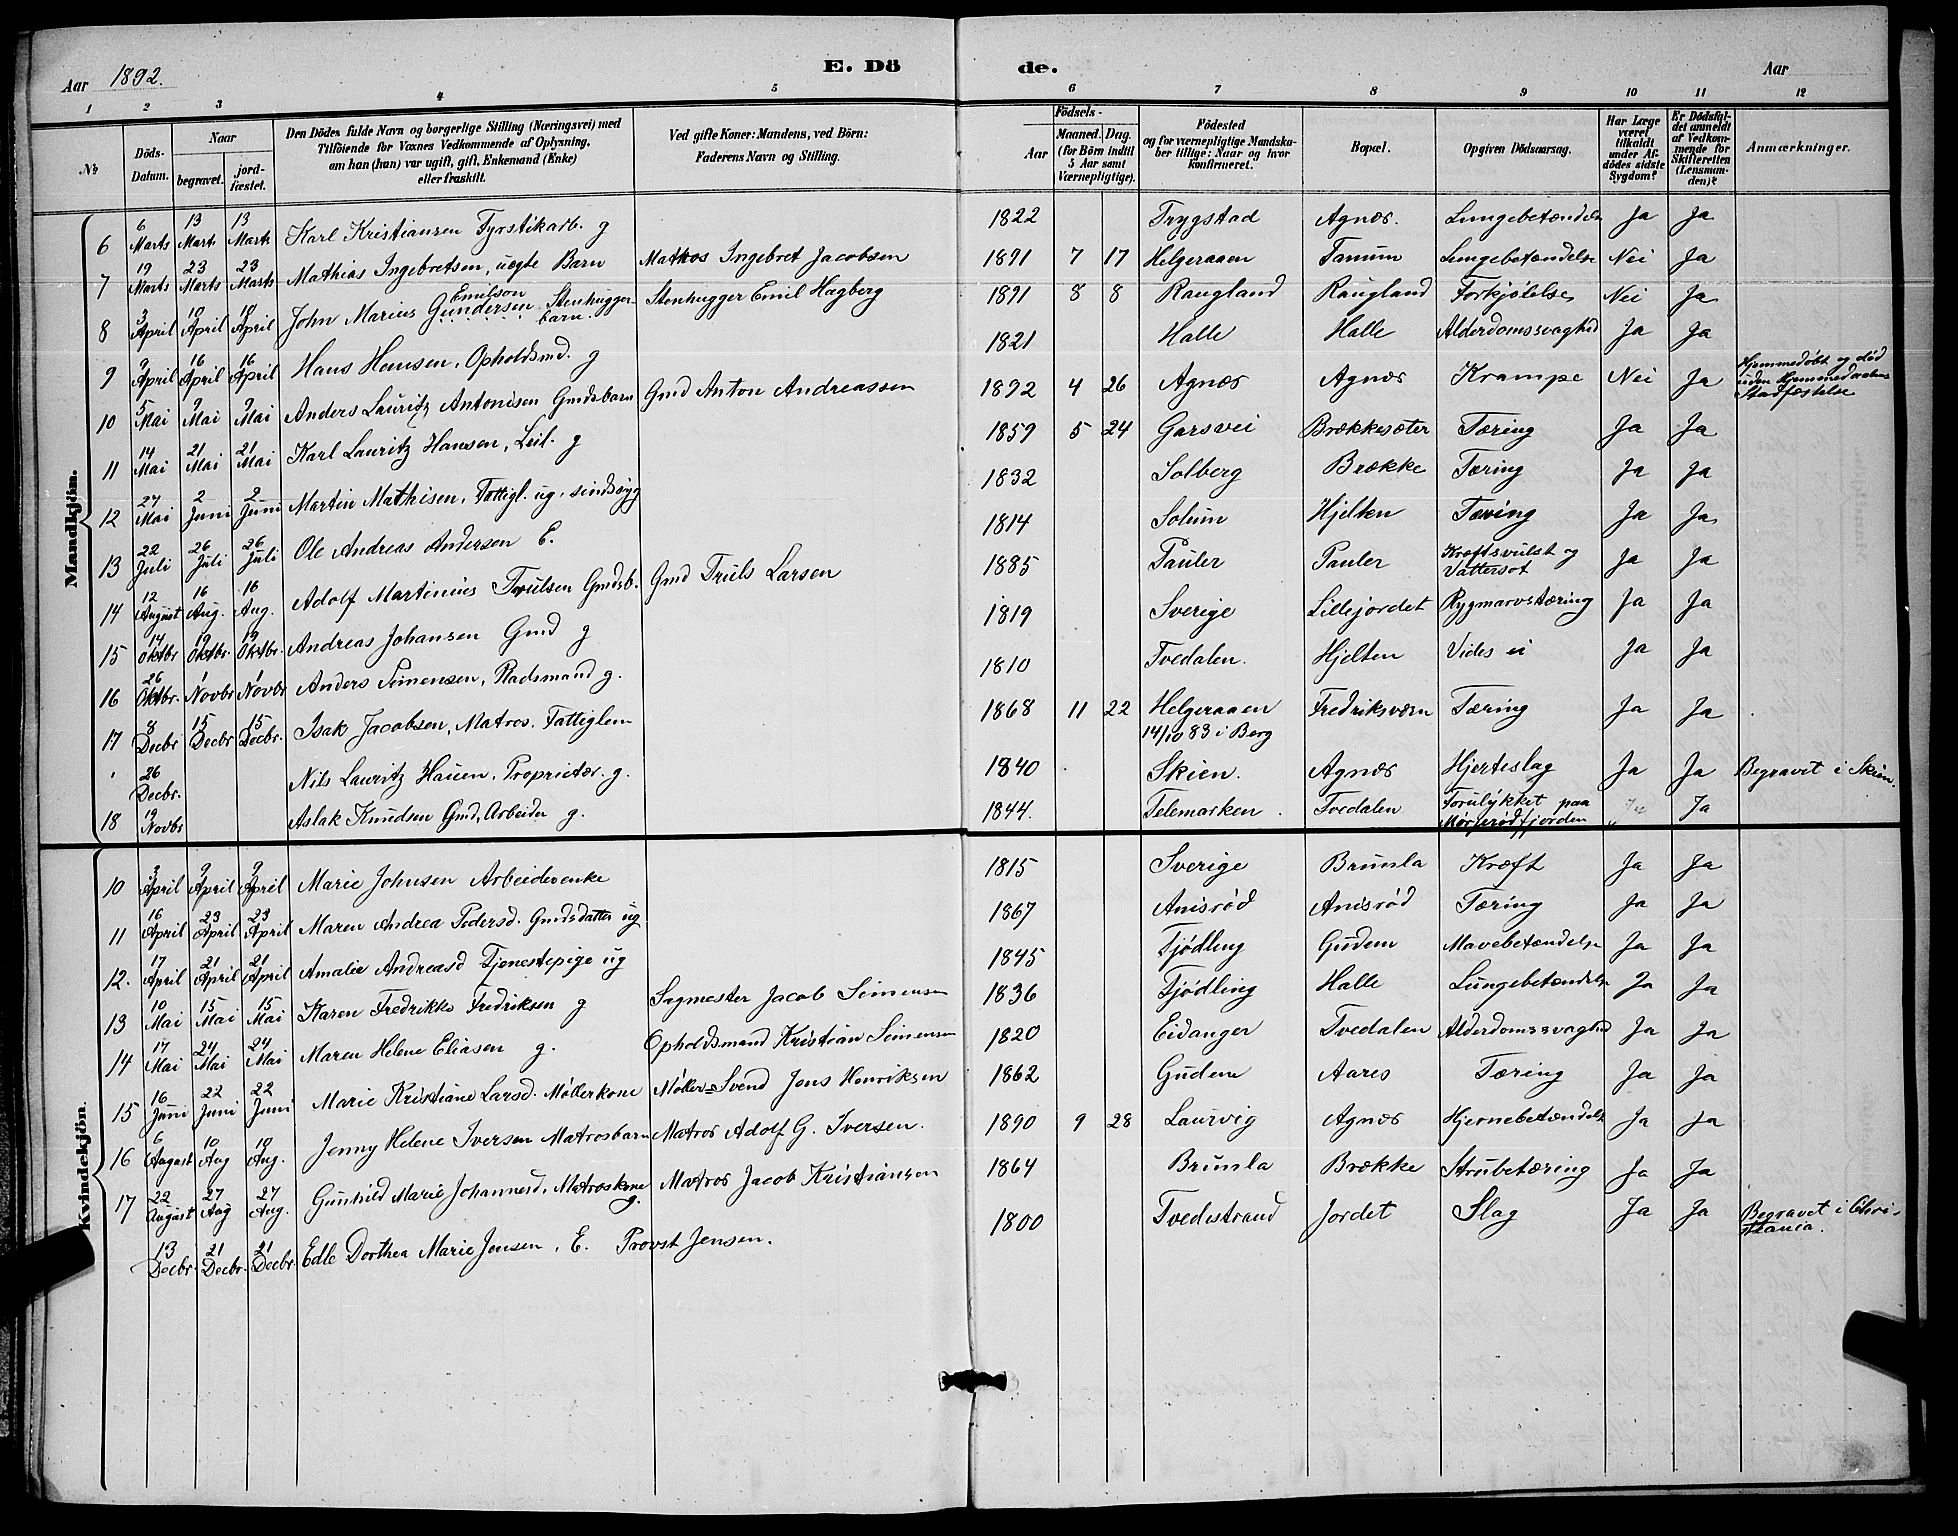 Aar 1892.
E. Dö
de.
Aar
1 2 3 4 5 6 7 8 9 10 11 12
№
Döds-Datum.
Naar begravet. jord-fæstet.
Den Dödes fulde Navn og borgerlige Stilling (Næringsvei) med Tilföiende for Voxnes Vedkommende af Oplysning, om han (hun) var ugift, gift, Enkemand (Enke) eller fraskilt.
Ved gifte Koner: Mandens, ved Börn: Faderens Navn og Stilling.
Födsels- Aar Maaned. Dag. (for Börn indtil 5 Aar samt Værnepligtige).
Födested og for værnepligtige Mandskaber tillige: Naar og hvor konfirmeret.
Bopæl.
Opgiven Dödsaarsag.
Har Læge været tilkaldt under Afdödes sidste Sygdom?
Er Dödsfaldet anmeldt af Vedkommende for Skifteretten (Lensmanden)?
Anmærkninger.
Mandkjön.
6 6 Marts 13 Marts 13 Marts Karl Kristiansen Fyrstikarb. g 1822 Trygstad Agnæs. Lungebetændelse Ja Ja
7 19 Marts 23 Marts 23 Marts Mathias Ingebretsen, uægte Barn Matros Ingebret Jacobsen 1891 7 17 Helgeraaen Tanum Lungebetændelse Nei Ja
8 3 April 10 April 10 April John Marius Gundersen Emilson Stenhugger barn. Stenhugger Emil Hagberg 1891 8 8 Raugland Raugland Forkjølelse Nei Ja
9 9 April 16 April 16 April Hans Hansen, Opholdsmd. g 1821 Halle Halle Alderdomssvaghed Ja Ja
10 5 Mai 9 Mai 9 Mai Anders Lauritz Antonisen Gmdsbarn Gmd Anton Andreassen 1892 4 26 Agnæs Agnæs Krampe Nei Ja Hjemmedøbt og død uden Hjemmedaabens Stadfæstelse
11 14 Mai 21 Mai 21 Mai Karl Lauritz Hansen, Leil. g 1859 5 24 Garsvei Brækkesæter Tæring Ja Ja
12 27 Mai 2 Juni 2 Juni Martin Mathisen, Fattigl. ug. sindssyg 1832 Solberg Brække Tæring Ja Ja
13 22 Juli 26 Juli 26 Juli Ole Andreas Andersen E. 1814 Solum Hjelten Tæring Ja Ja
14 12 August 16 Aug. 16 Aug. Adolf Martinius Trulsen Gmdsb. Gmd Truls Larsen 1885 Pauler Pauler Kræftsvulst og Vattersot Ja Ja
15 14 Oktbr 19 Oktbr. 19 Oktbr. Andreas Johansen Gmd g 1819 Sverige Lillejordet Rygmarvstæring Ja Ja
16 26 Oktbr. 1 Novbr 1 Novbr Anders Simensen, Radsmand g. 1810 Tvedalen. Hjelten Vides ei Ja Ja
17 8 Decbr 15 Decbr 15 Decbr. Isak Jacobsen, Matros. Fattiglem 1868 11 22 Helgeraaen 14/10 83 i Berg Fredriksværn Tæring Ja Ja
" 26 Decbr. Nils Lauritz Hauen, Proprietær. g. 1840 Skien. Agnæs Hjerteslag Ja Ja Begravet i Skien.
18 19 Novbr Aslak Knudsen Gmd, Arbeider g. 1844. Telemarken. Tvedalen Forulykket paa Mørjerødfjorden " Ja
Kvindekjön.
10 3 April 9 April 9 April Marie Johnsen Arbeiderenke 1815 Sverige Brunla Kræft Ja Ja
11 16 April 23 April 23 April Maren Andrea Pedersd. Gmdsdatter ug 1867 Anisrød Anisrød Tæring Ja Ja
12. 17 April 21 April 21 April Amalie Andreasd Tjenestepige ug 1845 Tjødling Gudem Mavebetændelse Ja Ja
13 10 Mai 15 Mai 15 Mai Karen Fredrikke Fredriksen g Sagmester Jacob Simensen 1836 Tjødling Halle Lungebetændelse Ja Ja
14 17 Mai 24 Mai 24 Mai Maren Helene Eliasen g. Opholdsmand Kristian Simensen 1820 Eidanger Tvedalen Alderdomssvaghed Ja Ja
15 16 Juni 22 Juni 22 Juni Marie Kristiane Larsd. Møllerkone Møller=Svend Jens Henriksen 1862 Gudem Aares Tæring Ja Ja
16 6 August 10 Aug 10 Aug. Jenny Helene Iversen Matrosbarn Matros Adolf G. Iversen. 1890 9 28 Laurvig Agnæs Hjernebetændelse Ja Ja
17 22 August 27 Aug 27 Aug. Gunhild Marie Johannesd. Matroskone g. Matros Jacob Kristiansen 1864 Brunla Brække Strubetæring Ja Ja
13 Decbr. 21 Decbr. 21 Decbr. Edle Dorthea Marie Jensen, E. Provst Jensen. 1800 Tvedestrand Jordet Slag Ja Ja Begravet i Christiania.